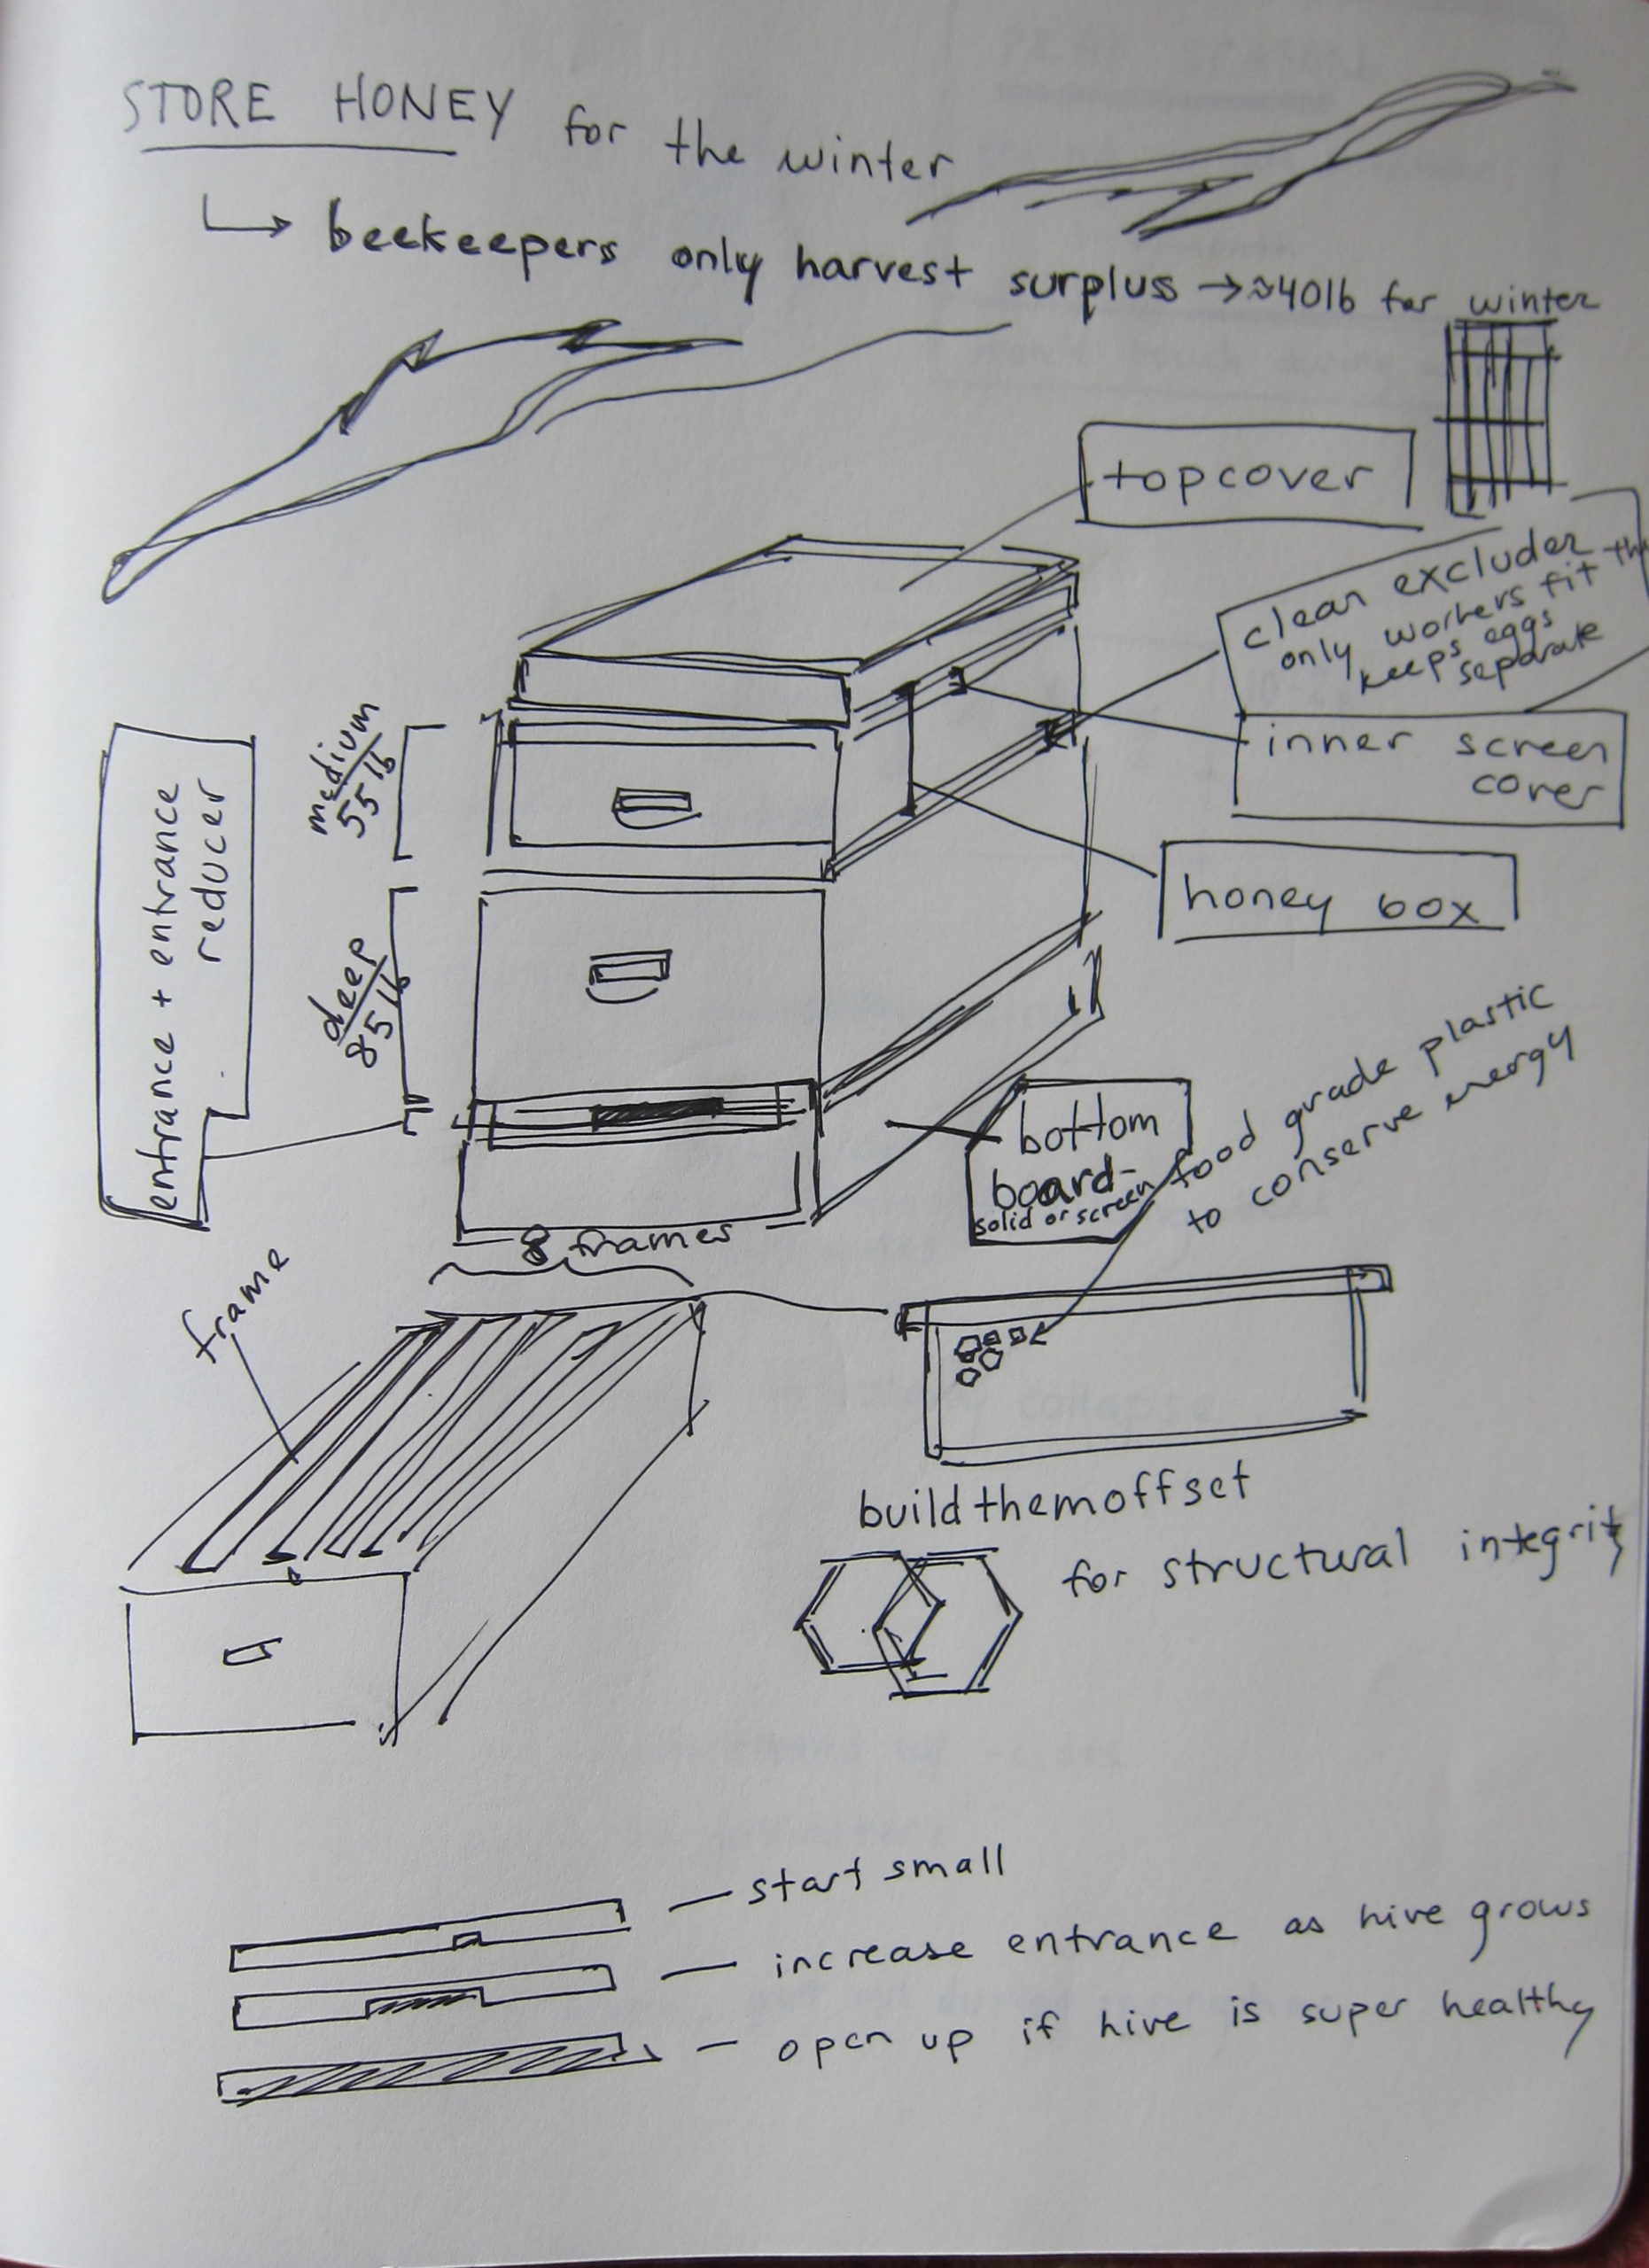 STORE HONEY for the winter
↳ beekeepers only harvest surplus → ≈40lb for winter
topcover
clean excluder
only workers fit th
keeps eggs
separate
inner screen
cover
honey box
medium
55 lb
deep
85 lb
entrance + entrance
reducer
bottom
board-
solid or screen
food grade plastic
to conserve energy
8 frames
frame
build them offset
for structural integrity
— start small
— increase entrance as hive grows
— open up if hive is super healthy